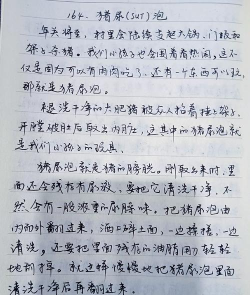 164. 猪尿(SUI)泡
年关将至，村里会陆续支起大锅，门板和
架子杀猪。我们小孩子也会围着看热闹，这不
仅是因为可以有肉肉吃了，还有一个东西可以玩，
那就是猪尿泡。
褪洗干净的大肥猪被众人抬着挂上架子，
开膛破肚后取出内脏，这其中的猪尿泡就
是我们小孩子的玩具。
猪尿泡就是猪的膀胱。刚取出来时，里
面还会残存有尿液，要把它清洗干净，不
然会有一股浓重的尿臊味。把猪尿泡由
内向外翻过来，洒上碎土面，一边揉搓，一边
清洗。还要把里面残存的油脂用力轻轻
地撕掉。就这样慢慢地把猪尿泡里面
清洗干净后再翻过来。